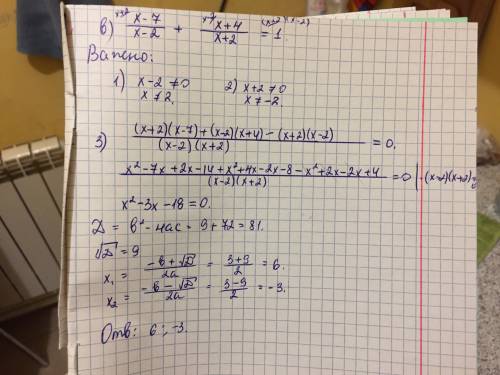 в) x+2⟍ (x-7)/(x-2) + x-2⟍ (x+4)/(x+2) = 1 (x+2)(x-2)
Важно:
1) x-2 ≠0 2) x+2 ≠0
x ≠ 2. x ≠ -2.
3) ((x+2)(x-7)+(x-2)(x+4) - (x+2)(x-2))/((x-2)(x+2)) = 0.
(x²-7x+2x-14+x²+4x-2x-8-x²+2x-2x+4)/((x-2)(x+2)) = 0 | ·(x-2)(x+2)
x²-3x-18=0.
D = b²-4ac = 9+72=81.
√D = 9
x₁ = (-b+√D)/2a = (3+9)/2 = 6.
x₂ = (-b-√D)/2a = (3-9)/2 = -3.
Отв: 6 ; -3.